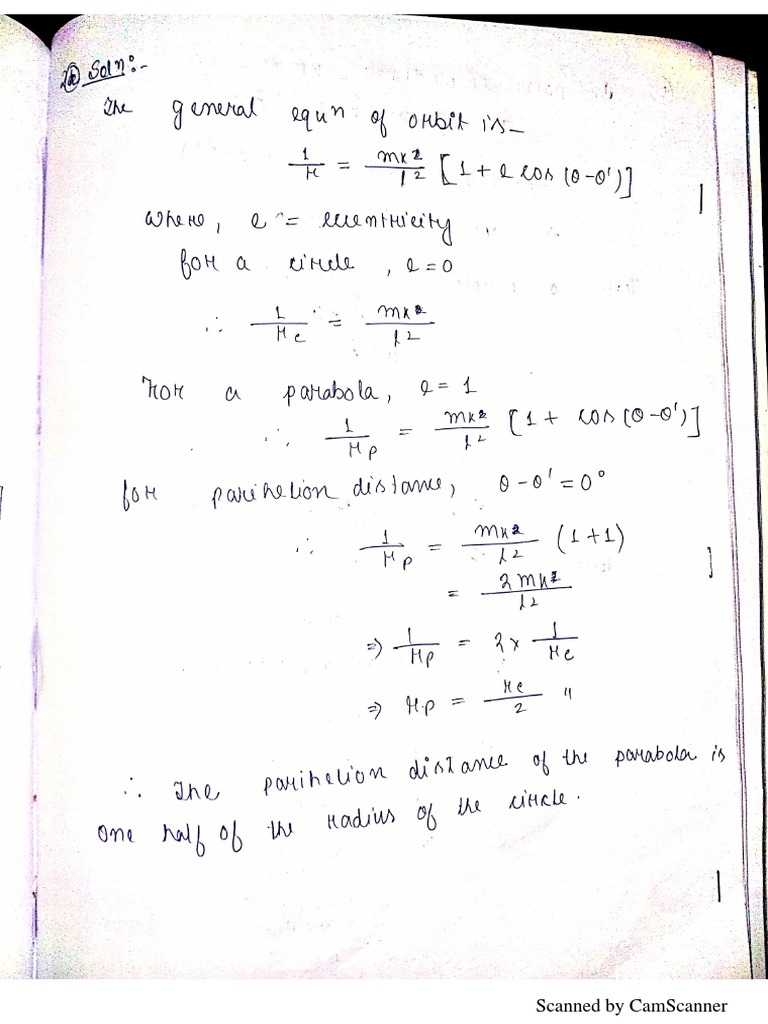 Soln:-
The general equn of orbit is-
1/r = mk/l² [1 + e cos (θ-θ')]
where, e = eccentricity
for a circle, e = 0
∴ 1/rc = mk/l²
For a parabola, e = 1
∴ 1/rp = mk/l² [1 + cos (θ-θ')]
for parihelion distance, θ-θ' = 0°
∴ 1/rp = mk/l² (1+1)
= 2mk/l²
⇒ 1/rp = 2 × 1/rc
⇒ rp = rc/2 "
∴ The parihelion distance of the parabola is
one half of the radius of the circle.
Scanned by CamScanner